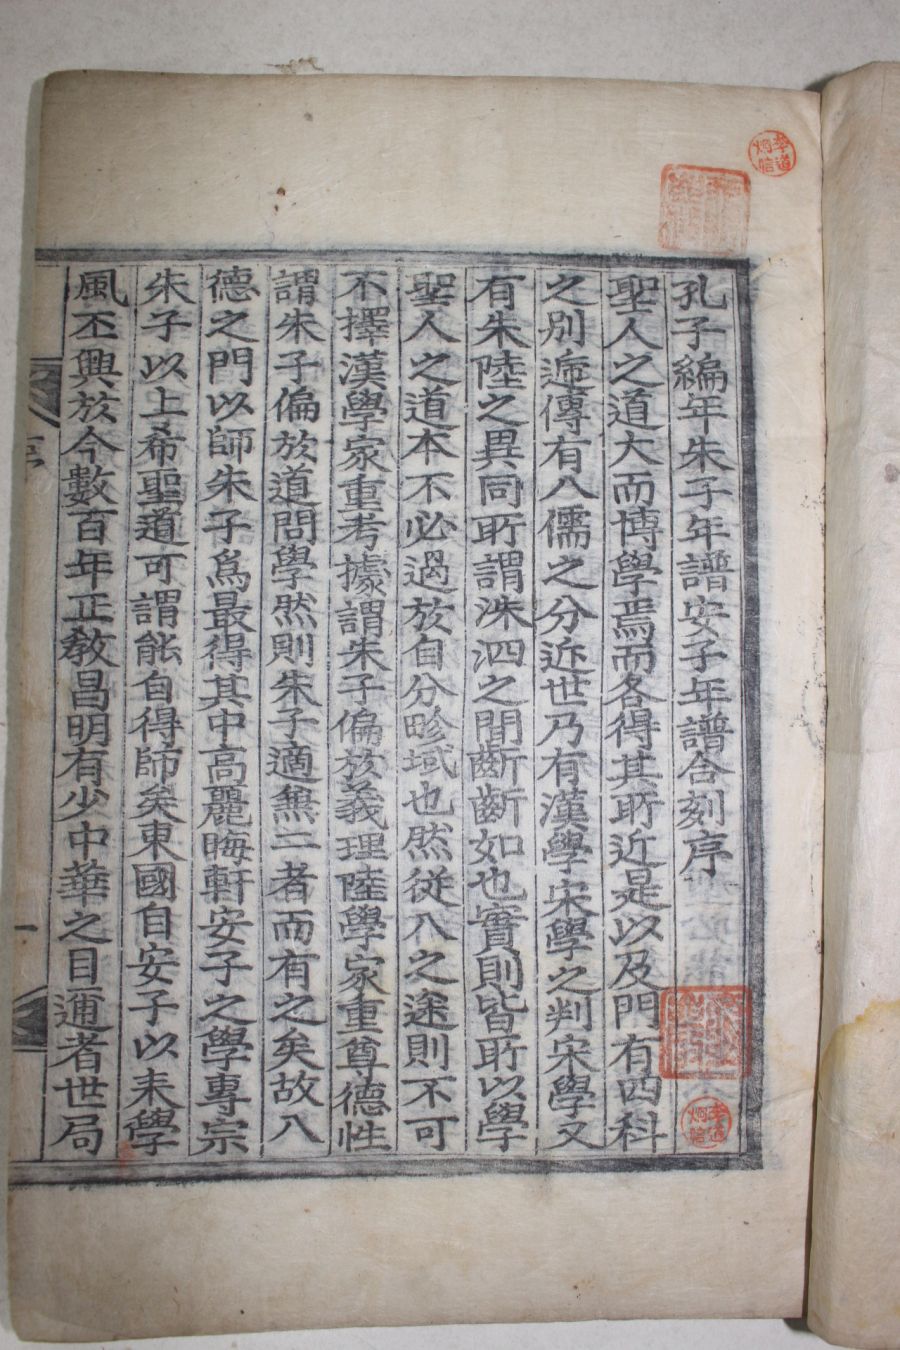 孔子編年朱子年譜安子年譜合刻序
聖人之道大而博學焉而各得其所近是以及門有四科
之別遞傳有八儒之分近世乃有漢學宋學之判宋學又
有朱陸之異同所謂洙泗之間齗齗如也實則皆所以學
聖人之道本不必過於自分畛域也然從入之途則不可
不擇漢學家重考據謂朱子偏於義理陸學家重尊德性
謂朱子偏於道問學然則朱子適無二者而有之矣故入
德之門以師朱子爲最得其中高麗晦軒安子之學專宗
朱子以上希聖道可謂能自得師矣東國自安子以來學
風丕興於今數百年正敎昌明有少中華之目邇者世局
序
一
李道炯信
李道炯信